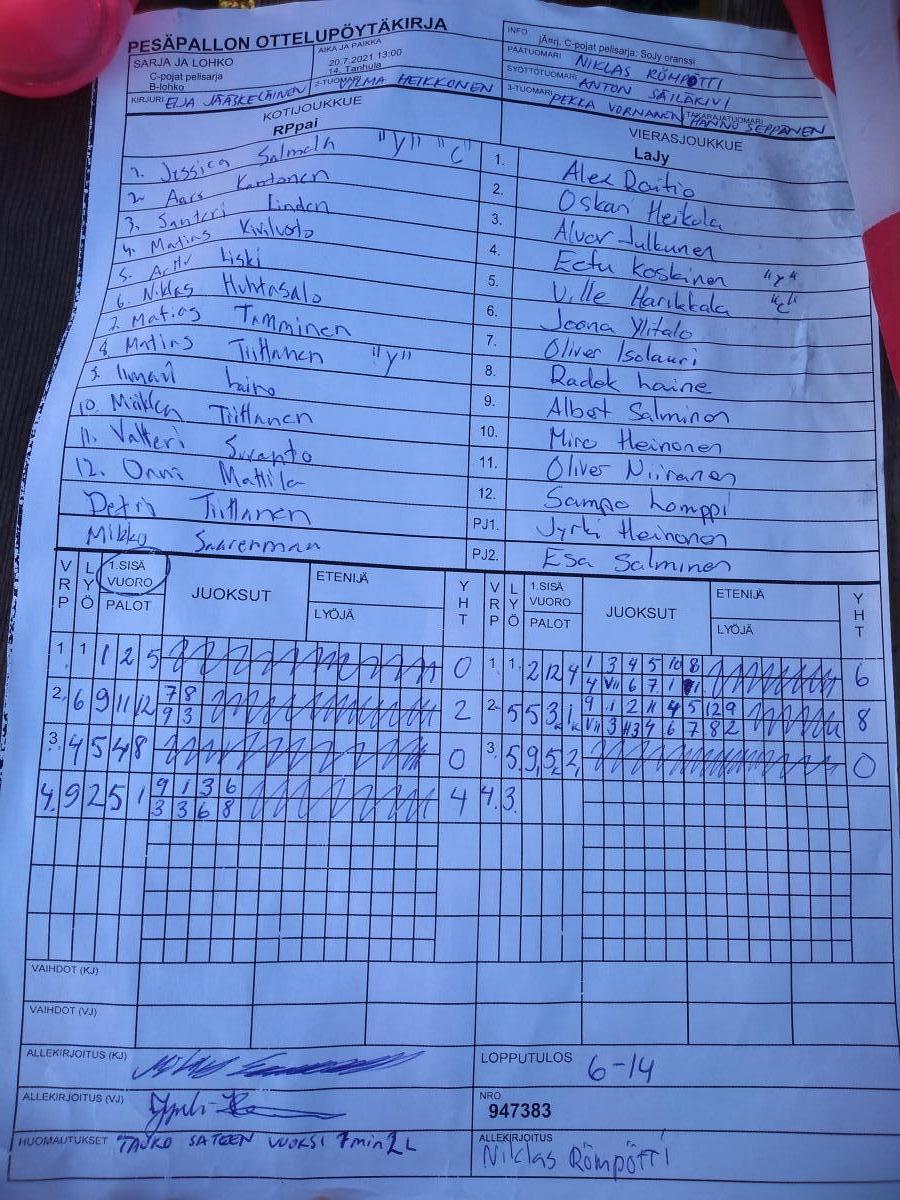 PESÄPALLON OTTELUPÖYTÄKIRJA
SARJA JA LOHKO
C-pojat pelisarja
B-lohko
AIKA JA PAIKKA
20.7.2021 13:00
14. Tanhula
INFO
jÄrj. C-pojat pelisarja: SoJy oranssi
PÄÄTUOMARI NIKLAS RÖMPÖTTI
SYÖTTÖTUOMARI ANTON SÄILÄKIVI
KIRJURI EIJA JÄÄSKELÄINEN 2-TUOMARI VILMA HEIKKONEN 3-TUOMARI PEKKA VORNANEN TAKARAJATUOMARI HANNU SEPPÄNEN
KOTIJOUKKUE
RPpai
VIERASJOUKKUE
LaJy
1. Jessica Salmela "y" "c" 1. Alex Raitio
2. Kantonen 2. Oskari Heikola
3. Santeri Linden 3. Julkunen
4. Matias 4. Eetu Koskinen "y"
5. Kiski 5. Ville Harikkala "c"
6. Niklas Huhtasalo 6. Joona Ylitalo
7. Matias Tamminen 7. Oliver Isolauri
8. Matias Tiittanen "y" 8. Radek Laine
9. Ilmari Laine 9. Albert Salminen
10. Miikka Tiittanen 10. Miro Heinonen
11. Valtteri Suranto 11. Oliver Niiranen
12. Onni Mattila 12. Sampo Lomppi
Petri Tiittanen PJ1. Jyrki Heinonen
Mikko Saarenmaa PJ2. Esa Salminen
VRP LYÖ 1.SISÄ VUORO PALOT JUOKSUT ETENIJÄ LYÖJÄ YHT VRP LYÖ 1.SISÄ VUORO PALOT JUOKSUT ETENIJÄ LYÖJÄ YHT
1. 1 1 2 5 0 1. 1. 2 12 4 1 3 4 5 10 8 6
4 VII 6 7 1
2. 6 9 11 12 7 8 2 2. 5 5 3 1 9 1 2 11 4 5 12 9 8
9 3 VII 3 4 6 7 8 2
3. 4 5 4 8 0 3. 5 9 5 2 0
4. 9 2 5 1 9 1 3 6 4 4. 3.
3 3 6 8
VAIHDOT (KJ)
VAIHDOT (VJ)
ALLEKIRJOITUS (KJ)
LOPPUTULOS 6-14
ALLEKIRJOITUS (VJ)
NRO
947383
HUOMAUTUKSET TAUKO SATEEN VUOKSI 7min 2L
ALLEKIRJOITUS
Niklas Römpötti